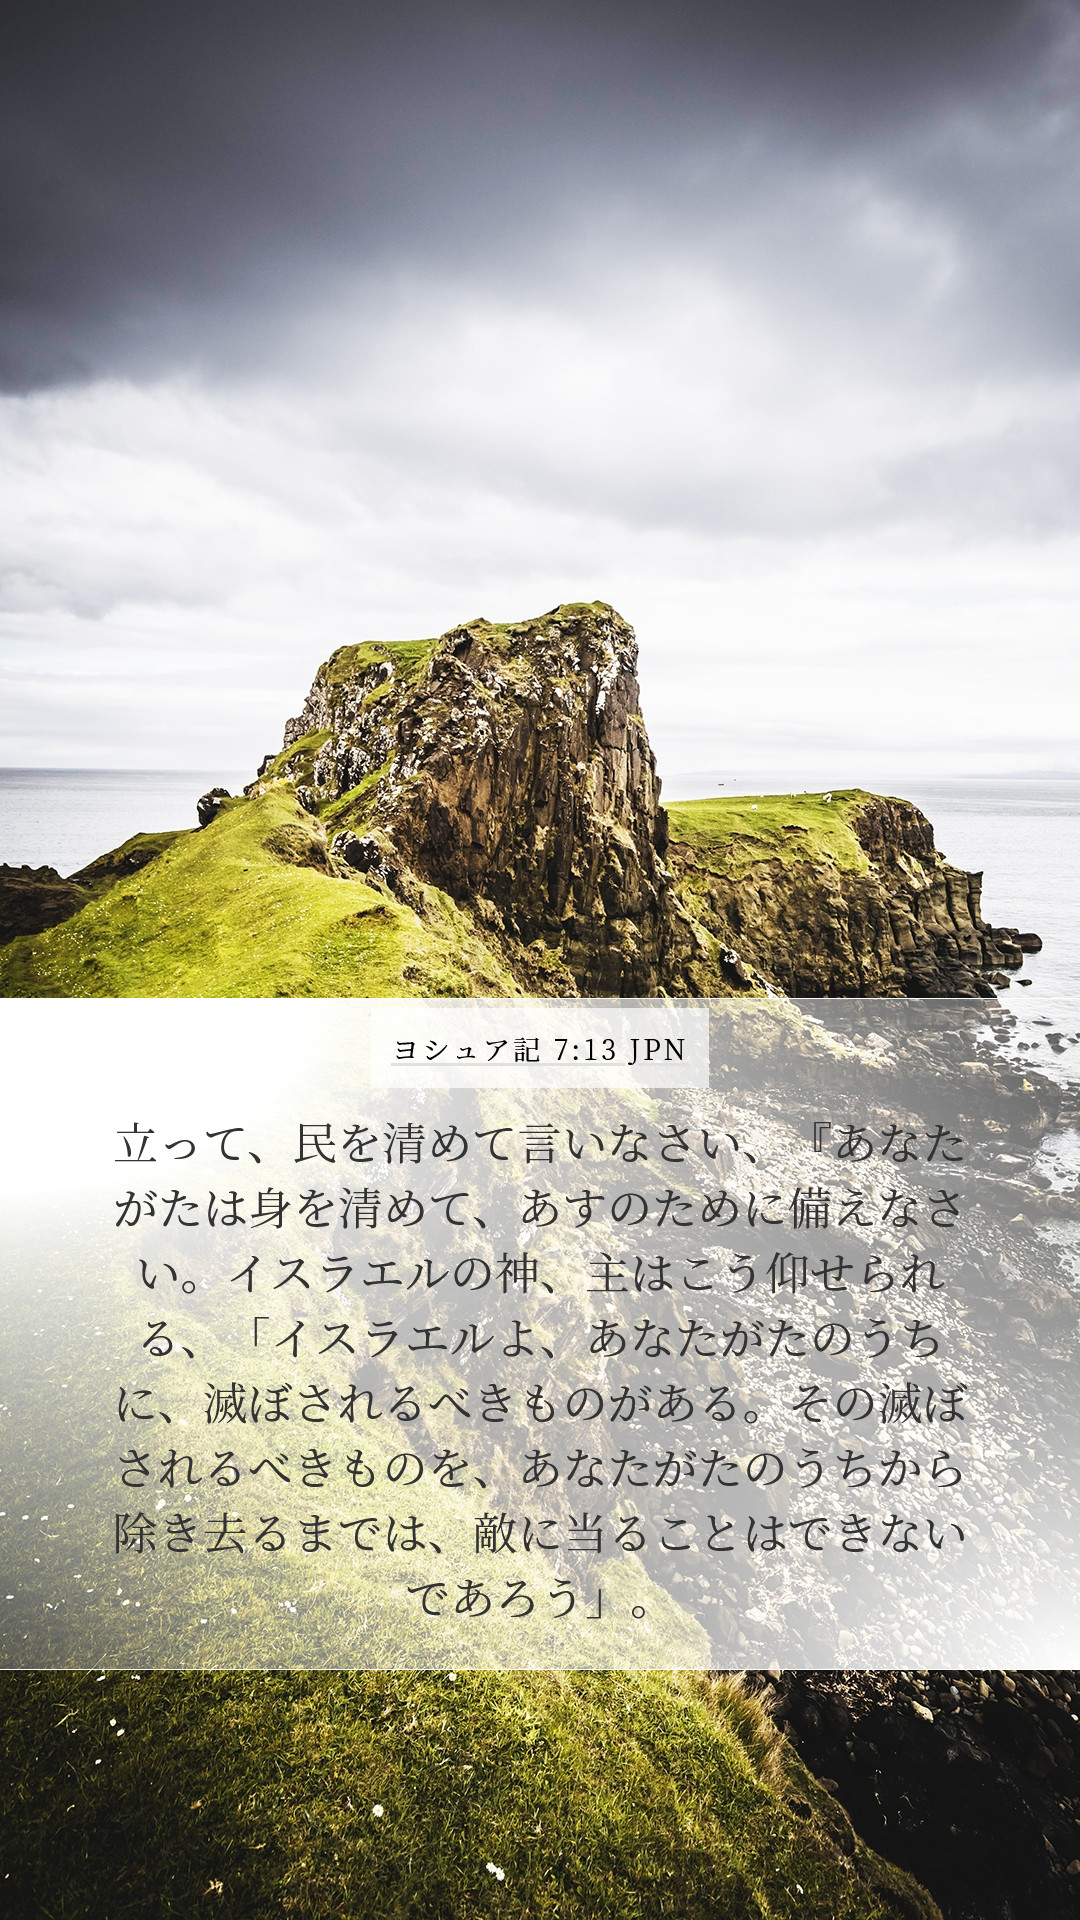 ヨシュア記 7:13 JPN
立って、民を清めて言いなさい、『あなた
がたは身を清めて、あすのために備えなさ
い。イスラエルの神、主はこう仰せられ
る、「イスラエルよ、あなたがたのうち
に、滅ぼされるべきものがある。その滅ぼ
されるべきものを、あなたがたのうちから
除き去るまでは、敵に当ることはできない
であろう」。